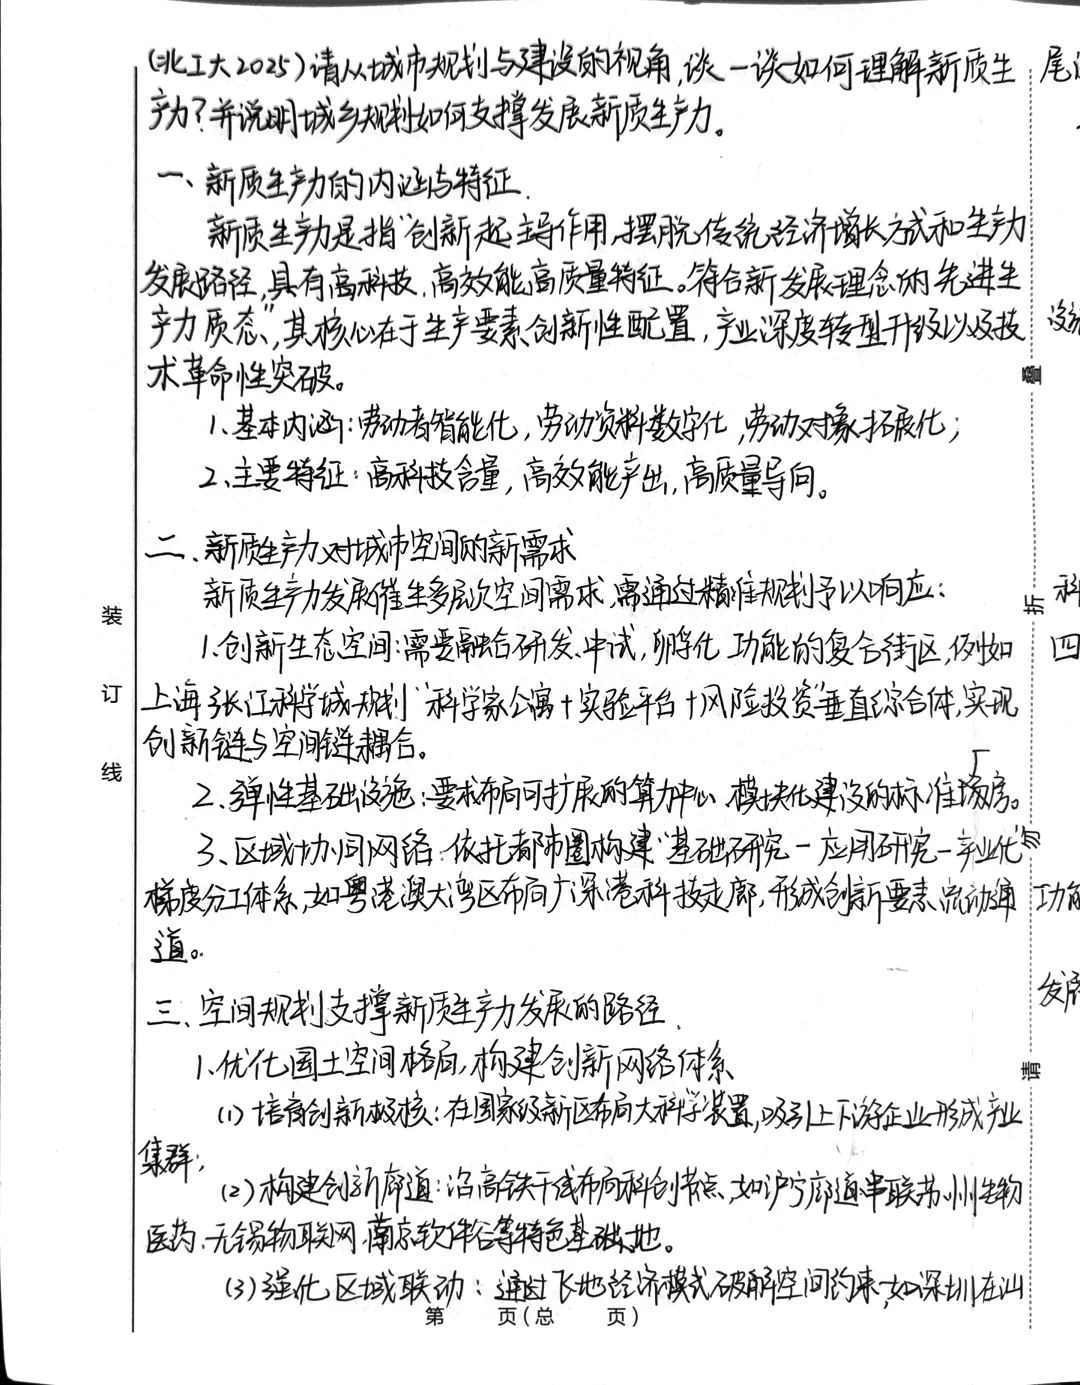 (北工大2025)请从城市规划与建设的视角,谈一谈如何理解新质生
产力?并说明城乡规划如何支撑发展新质生产力。
一、新质生产力的内涵与特征.
新质生产力是指"创新起主导作用,摆脱传统经济增长方式和生产力
发展路径,具有高科技、高效能、高质量特征。符合新发展理念的先进生
产力质态",其核心在于生产要素创新性配置,产业深度转型升级以及技
术革命性突破。
1、基本内涵:劳动者智能化,劳动资料数字化,劳动对象拓展化;
2、主要特征:高科技含量,高效能产出,高质量导向。
二、新质生产力对城市空间的新需求
新质生产力发展催生多层次空间需求,需通过精准规划予以响应:
1.创新生态空间:需要融合研发、中试,孵化 功能的复合街区,例如
上海张江科学城规划"科学家公寓+实验平台+风险投资"垂直综合体,实现
创新链与空间链耦合。
2、弹性基础设施:要求布局可扩展的算力中心、模块化建设的标准厂房。
3、区域协同网络:依托都市圈构建"基础研究-应用研究-产业化"
梯度分工体系,如粤港澳大湾区布局广深港科技走廊,形成创新要素流动通
道。
三、空间规划支撑新质生产力发展的路径.
1、优化国土空间格局,构建创新网络体系
(1)培育创新极核:在国家级新区布局大科学装置,吸引上下游企业形成产业
集群;
(2)构建创新廊道:沿高铁干线布局科创节点,如沪宁廊道串联苏州生物
医药、无锡物联网、南京软件谷等特色基地。
(3)强化区域联动:通过飞地经济模式破解空间约束,如深圳在汕
第 页(总 页)
装
订
线
叠
折
勿
请
尾
科
四
功能
发展